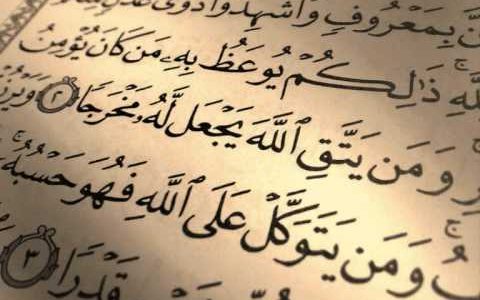 بِمَعْرُوفٍ وَأَشْهِدُوا۟ ذَوَىْ عَدْلٍ
لَّهِ ۚ ذَٰلِكُمْ يُوعَظُ بِهِۦ مَن كَانَ يُؤْمِنُ
وَمَن يَتَّقِ ٱللَّهَ يَجْعَل لَّهُۥ مَخْرَجًا ٢ وَيَرْزُ
وَمَن يَتَوَكَّلْ عَلَى ٱللَّهِ فَهُوَ حَسْبُهُۥٓ
قَدْرًا ٣